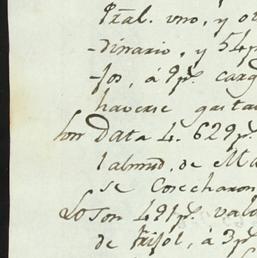 Rzal. vno, y or
dinario, y 54p
-fos, à 9ps. carg
haverse quitad
Data 4. 629ps.
1 almud, de Ma
se Cosecharon
Son 491ps. valo
de frijol, à 3ps